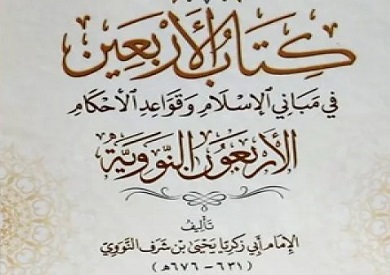 كِتَابُ الأَرْبَعِين
فِي مَبَانِي الإِسْلَامِ وَقَوَاعِدِ الأَحْكَامِ
الأَرْبَعُونَ النَّوَوِيَّة
تَأْلِيفُ
الإِمَامِ أَبِي زَكَرِيَّا يَحْيَى بْنِ شَرَفٍ النَّوَوِيِّ
(٦٣١ - ٦٧٦ هـ)